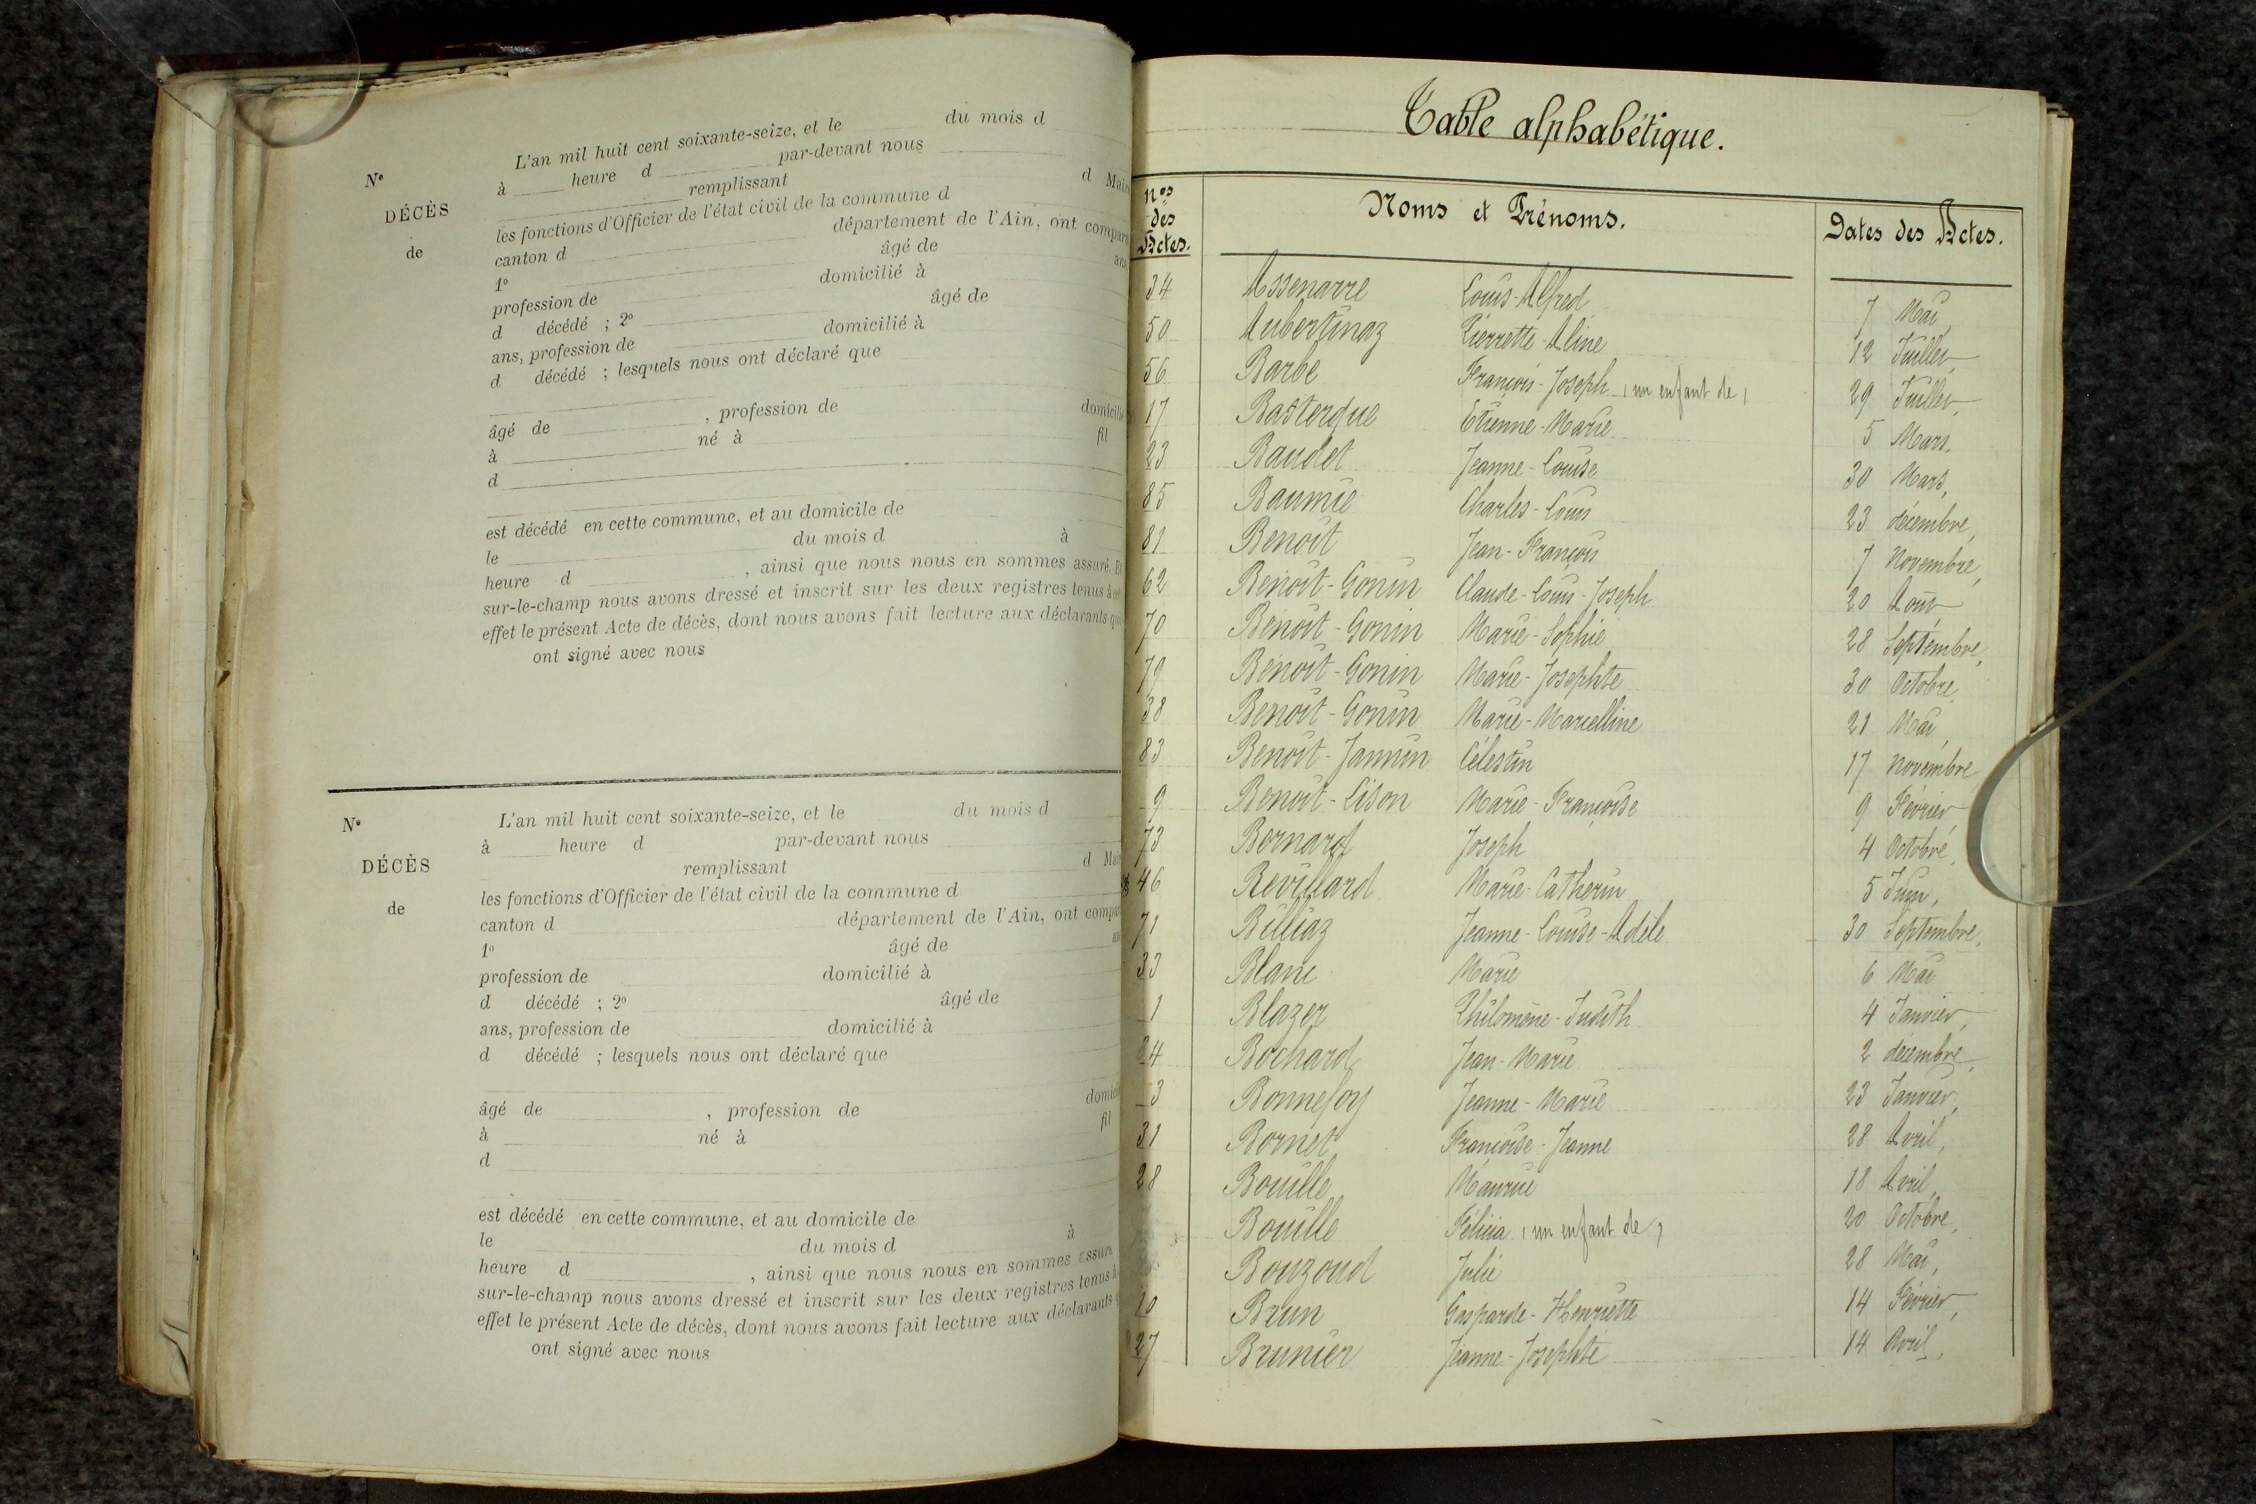 L'an mil huit cent soixante-seize, et le du mois d
N° à heure d par-devant nous
remplissant d Maire
DÉCÈS les fonctions d'Officier de l'état civil de la commune d
de canton d département de l'Ain, ont comparu
1° âgé de ans,
profession de domicilié à
d décédé ; 2° âgé de
ans, profession de domicilié à
d décédé ; lesquels nous ont déclaré que
âgé de , profession de domicilié
à né à fil
d
est décédé en cette commune, et au domicile de
le du mois d à
heure d , ainsi que nous nous en sommes assuré. Et
sur-le-champ nous avons dressé et inscrit sur les deux registres tenus à cet
effet le présent Acte de décès, dont nous avons fait lecture aux déclarants qui
ont signé avec nous
N° L'an mil huit cent soixante-seize, et le du mois d
à heure d par-devant nous
DÉCÈS remplissant d Mai
de les fonctions d'Officier de l'état civil de la commune d
canton d département de l'Ain, ont compa
1° âgé de an
profession de domicilié à
d décédé ; 2° âgé de
ans, profession de domicilié à
d décédé ; lesquels nous ont déclaré que
âgé de , profession de domici
à né à fil
d
est décédé en cette commune, et au domicile de
le du mois d à
heure d , ainsi que nous nous en sommes assuré
sur-le-champ nous avons dressé et inscrit sur les deux registres tenus à
effet le présent Acte de décès, dont nous avons fait lecture aux déclarants
ont signé avec nous
Table alphabétique.
Nos des Actes. Noms et Prénoms. Dates des Actes.
34 Assenarre Louis-Alfred 7 Mai,
50 Aubertinaz Pierrette-Aline 12 Juillet,
56 Barbe François-Joseph (un enfant de) 29 Juillet,
17 Basterque Etienne-Marie 5 Mars.
23 Baudet Jeanne-Louise 30 Mars,
85 Baumie Charles-Louis 23 décembre,
81 Benoit Jean-François 7 Novembre,
62 Benoit-Gonin Claude-Louis-Joseph 20 Août
70 Benoit-Gonin Marie-Sophie 28 Septembre,
79 Benoit-Gonin Marie-Josephte 30 Octobre
38 Benoit-Gonin Marie-Marcelline 21 Mai,
83 Benoit-Jannin Célestin 17 novembre,
9 Benoit-Lison Marie-Françoise 9 Février
73 Bernard Joseph 4 Octobre,
46 Revillard Marie-Catherin 5 Juin,
71 Billiaz Jeanne-Louise-Adèle 30 Septembre,
33 Blanc Marie 6 Mai
1 Blazer Philomène-Judith 4 Janvier,
84 Bochard Jean-Marie 2 décembre,
3 Bonnefoy Jeanne-Marie 23 Janvier,
31 Bornet Françoise-Jeanne 28 Avril,
28 Bouille Maurice 18 Avril,
Bouille Félicia (un enfant de) 20 Octobre,
Bouzoud Julie 28 Mai,
10 Brun Gasparde-Henriette 14 Février,
27 Brunier Jeanne-Josephte 14 Avril,